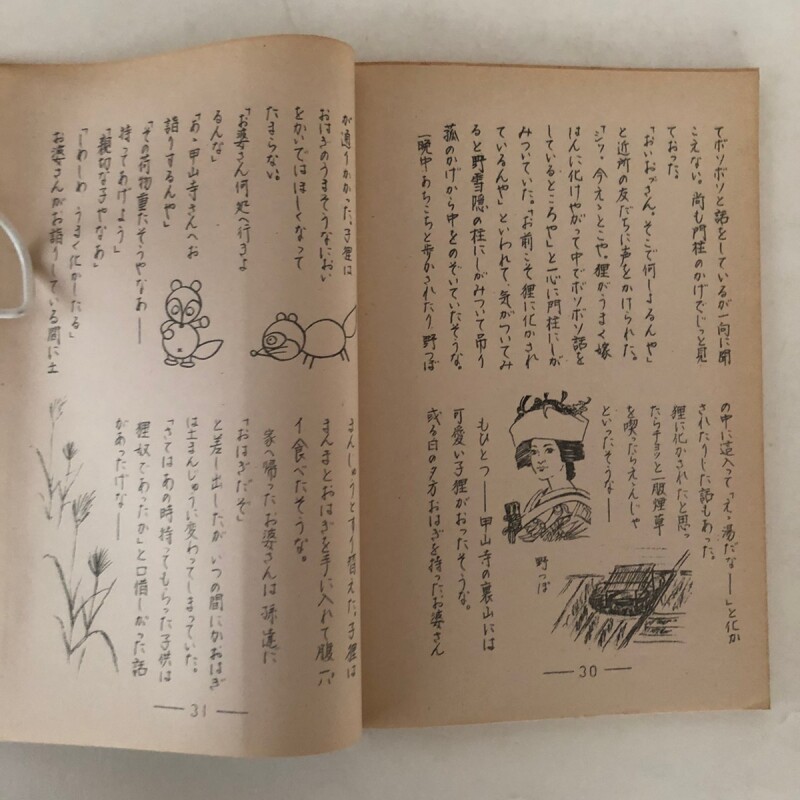 てボソボソと話をしているが一向に聞
こえない。尚も門柱のかげでじっと見
ておった。
「おいおっさん。そこで何しよるんや」
と近所の友だちに声をかけられた。
「シッ。今ええとこや。狸がうまく嫁
はんに化けやがって中でボソボソ話を
しているところや」と一心に門柱にしが
みついていた。「お前こそ狸に化かされ
ているんや」といわれて、気がついてみ
ると野雪隠の柱にしがみついて吊り
菰のかげから中をのぞいていたそうな。
一晩中あちこちと歩かされたり野つぼ
の中に這入って「ええ湯だなー」と化か
されたりした話もあった。
狸に化かされたと思っ
たらチョッと一服煙草
を喫ったらええんじゃ
といったそうなー
もひとつ──甲山寺の裏山には
可愛い子狸がおったそうな。
或る日の夕方おはぎを持ったお婆さん
野つぼ
30
が通りかかった。子狸は
おはぎのうまそうなにおい
をかいでほしくなって
たまらない。
「お婆さん何処へ行きよ
るんな」
「あゝ甲山寺さんへお
詣りするんや」
「その荷物重たそうやなあー
持ってあげよう」
「親切な子やなあ」
「しめしめ うまく化かしたる」
お婆さんがお詣りしている間に土
まんじゅうとすり替えた。子狸は
まんまとおはぎを手に入れて腹一パ
イ食べたそうな。
家へ帰ったお婆さんは孫達に
「おはぎだぞ」
と差し出したが いつの間にかおはぎ
は土まんじゅうに変わってしまっていた。
「さてはあの時持ってもらった子供は
狸奴であったか」と口惜しかった話
があったげなー
31